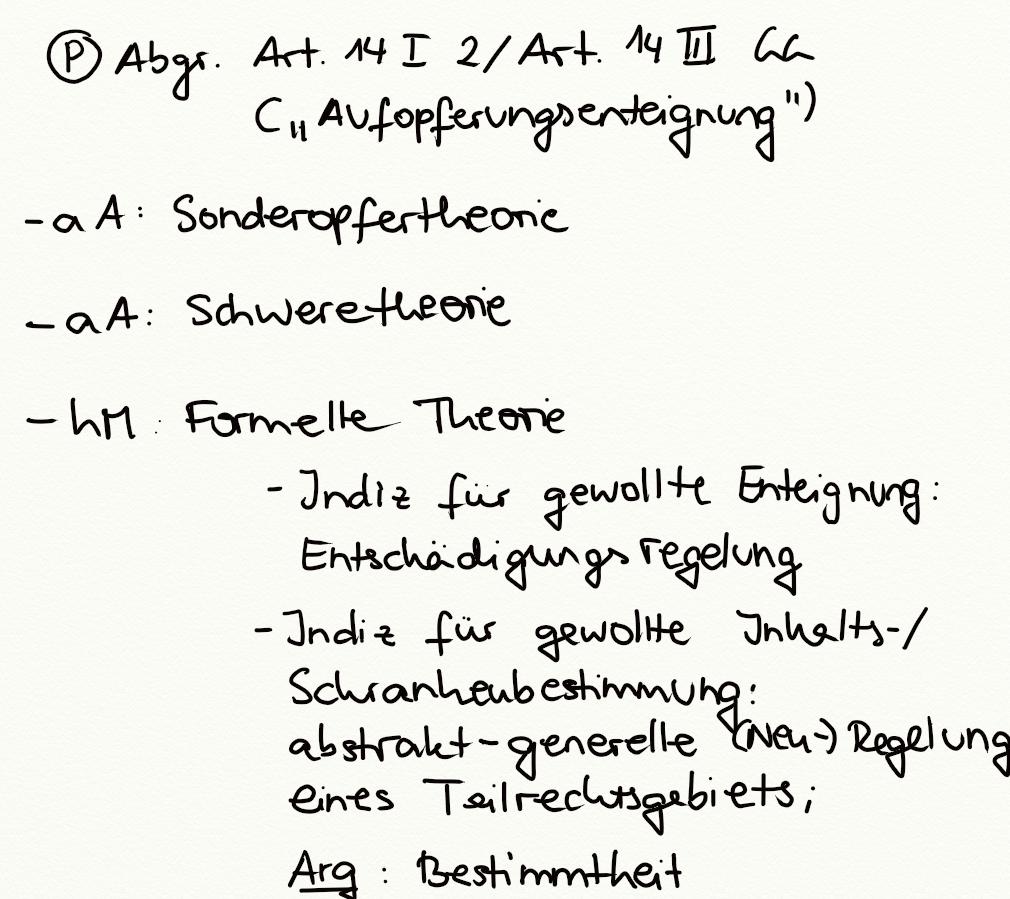 Ⓟ Abgr. Art. 14 I 2/Art. 14 III GG
(„Aufopferungsenteignung")
- aA: Sonderopfertheorie
- aA: Schweretheorie
- hM: Formelle Theorie
- Indiz für gewollte Enteignung:
Entschädigungsregelung
- Indiz für gewollte Inhalts-/
Schrankenbestimmung:
abstrakt-generelle (Neu-) Regelung
eines Teilrechtsgebiets;
Arg: Bestimmtheit